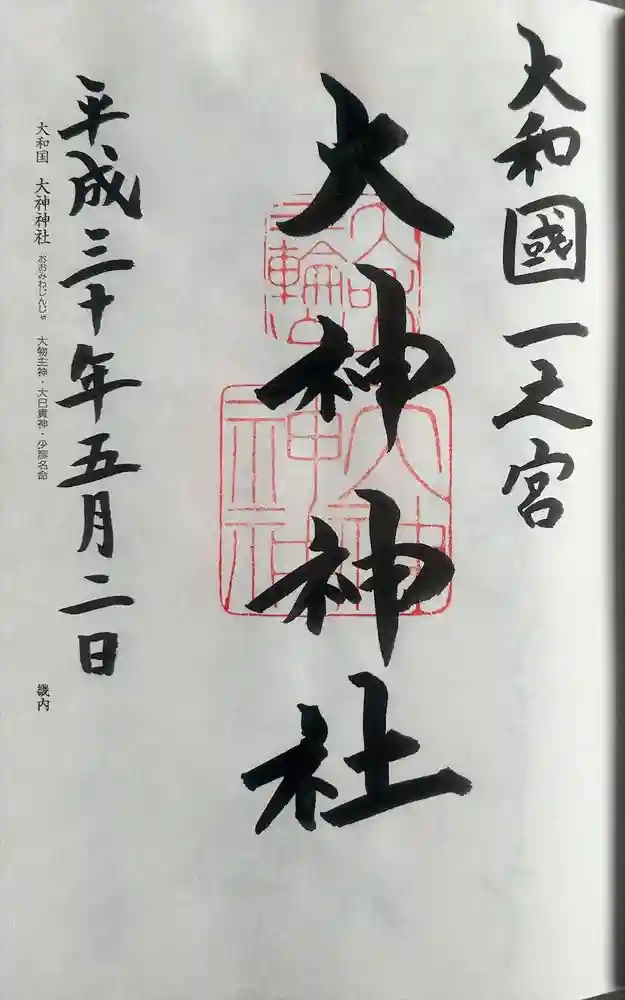 大和國一之宮
大神神社
三輪
大神神社
平成三十年五月二日
大和国 大神神社 おおみわじんじゃ 大物主神・大己貴神・少彦名命
畿内